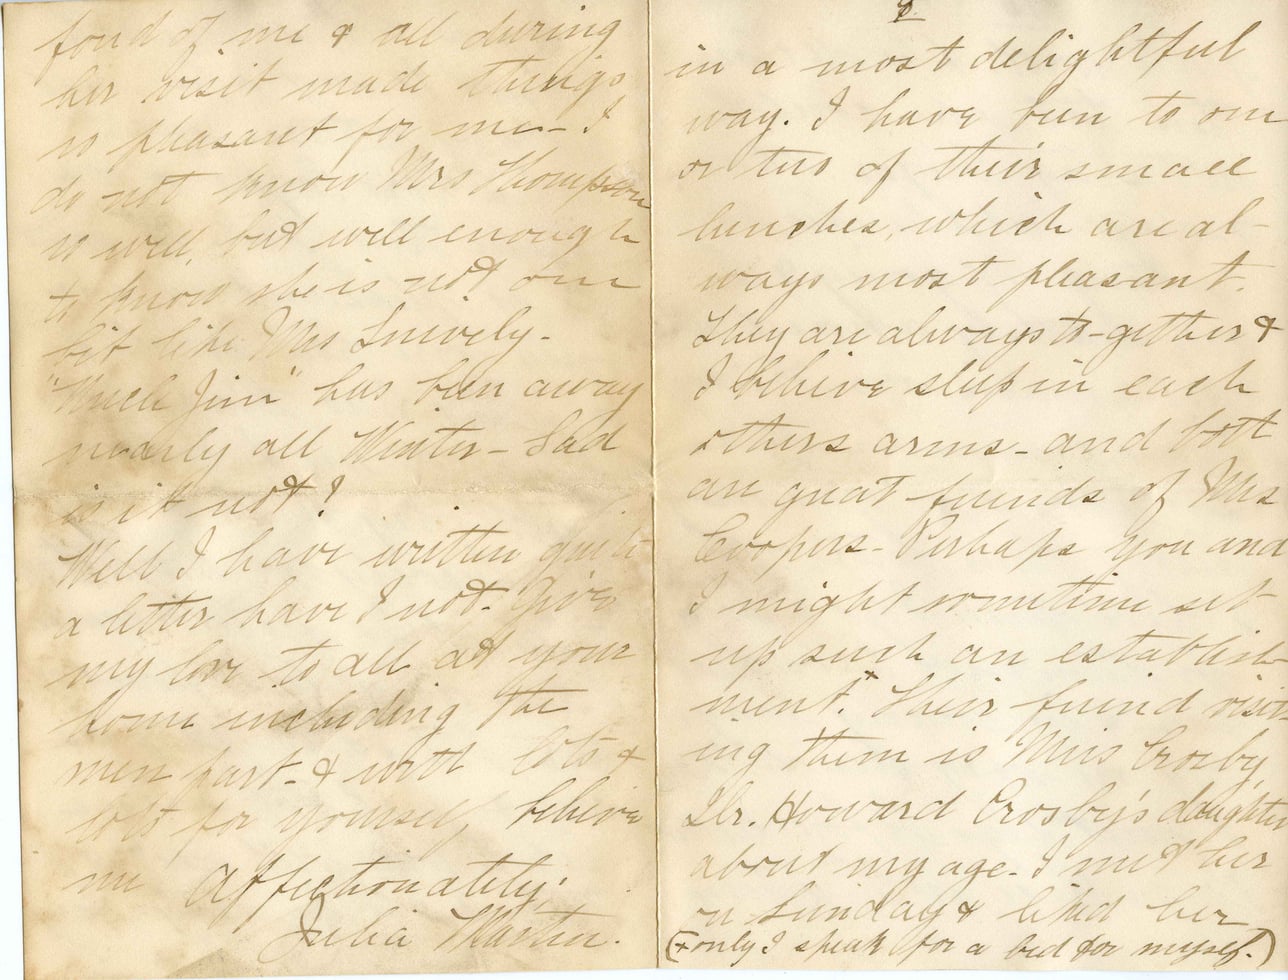 fond of me & all during
her visit made things
so pleasant for me - I
do not know Mrs Thompson
so well, but well enough
to know she is not one
bit like Mrs Snively -
"Uncle Jim" has been away
nearly all Winter - Sad
is it not?
Well I have written quite
a letter have I not. Give
my love to all at your
home including the
men part - & with lots &
lots for yourself believe
me Affectionately.
Julia
in a most delightful
way. I have been to one
or two of their small
lunches, which are al-
ways most pleasant.
They are always to-gether &
I believe sleep in each
others arms - and both
are great friends of Mrs
Coopers - Perhaps you and
I might sometime set
up such an establish
ment.+ Their friend visit
ing them is Miss Crosby,
Dr. Howard Crosby's daughter
about my age - I met her
on Sunday & liked her
(+ only I speak for a bed for myself.)